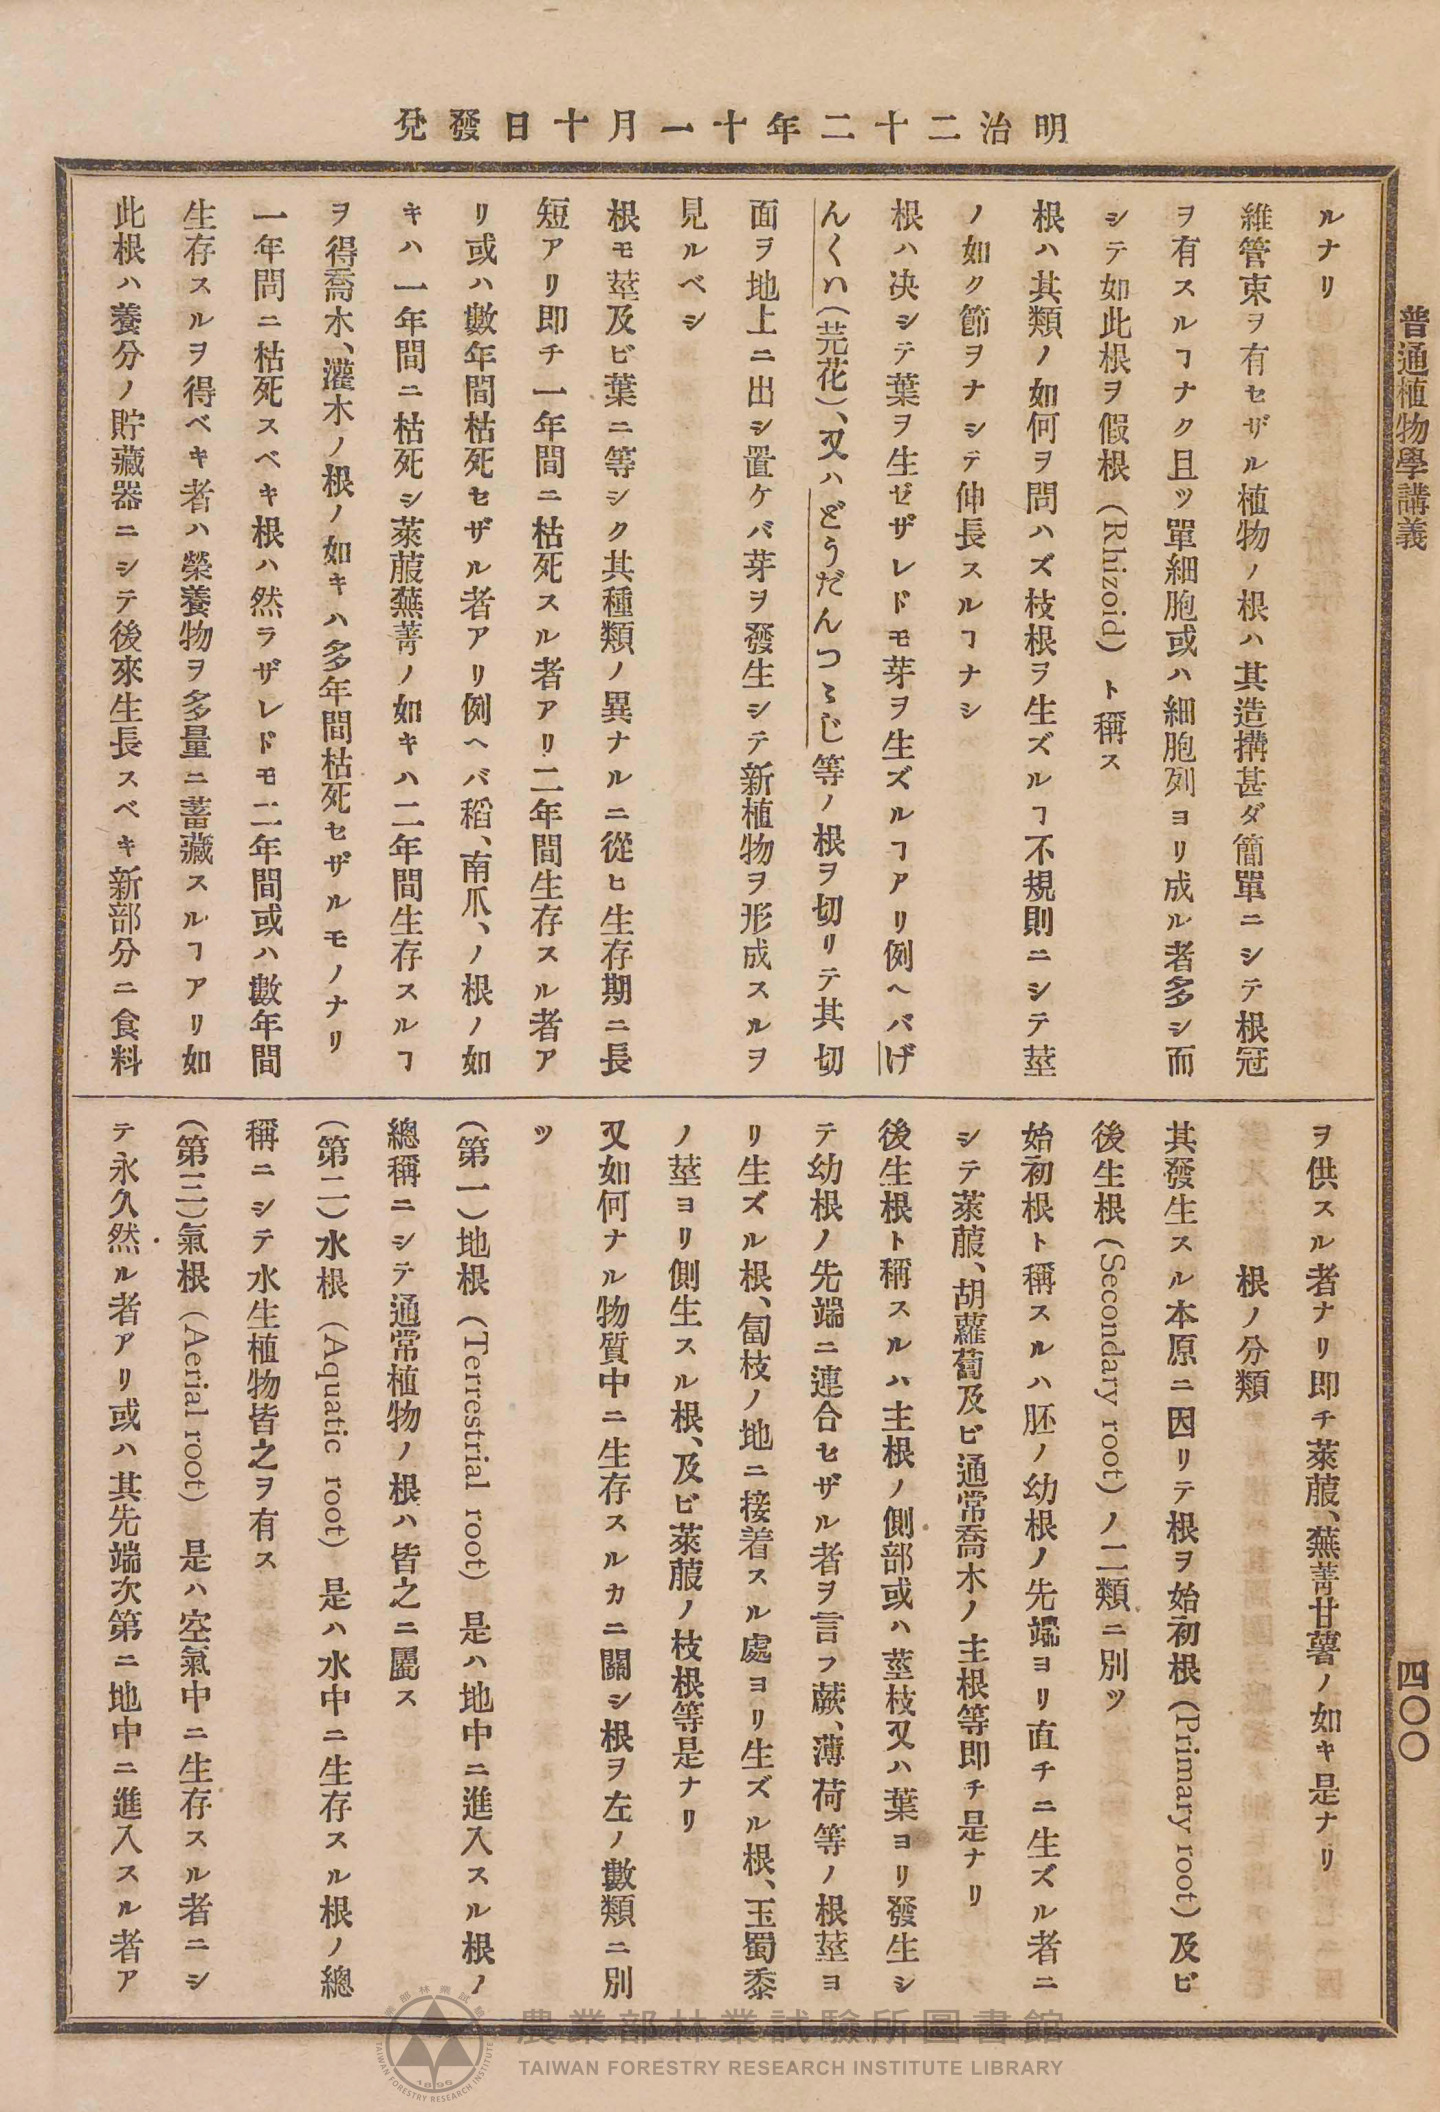 明治二十二年十一月十日發兌
普通植物學講義
四〇〇
ルナリ
維管束ヲ有セザル植物ノ根ハ其造搆甚ダ簡單ニシテ根冠
ヲ有スルヿナク且ツ單細胞或ハ細胞列ヨリ成ル者多シ而
シテ如此根ヲ假根(Rhizoid)ト稱ス
根ハ其類ノ如何ヲ問ハズ枝根ヲ生ズルヿ不規則ニシテ莖
ノ如ク節ヲナシテ伸長スルヿナシ
根ハ決シテ葉ヲ生ゼザレドモ芽ヲ生ズルヿアリ例ヘバげ
んくハ(芫花)、又ハどうだんつゝじ等ノ根ヲ切リテ其切
面ヲ地上ニ出シ置ケバ芽ヲ發生シテ新植物ヲ形成スルヲ
見ルベシ
根モ莖及ビ葉ニ等シク其種類ノ異ナルニ從ヒ生存期ニ長
短アリ即チ一年間ニ枯死スル者アリ二年間生存スル者ア
リ或ハ數年間枯死セザル者アリ例ヘバ稻、南爪、ノ根ノ如
キハ一年間ニ枯死シ萊菔蕪菁ノ如キハ二年間生存スルヿ
ヲ得喬木、灌木ノ根ノ如キハ多年間枯死セザルモノナリ
一年問ニ枯死スベキ根ハ然ラザレドモ二年間或ハ數年間
生存スルヲ得ベキ者ハ榮養物ヲ多量ニ蓄藏スルヿアリ如
此根ハ養分ノ貯藏器ニシテ後來生長スベキ新部分ニ食料
ヲ供スル者ナリ即チ萊菔、蕪菁甘薯ノ如キ是ナリ
根ノ分類
其發生スル本原ニ因リテ根ヲ始初根(Primary root)及ビ
後生根(Secondary root)ノ二類ニ別ツ
始初根ト稱スルハ胚ノ幼根ノ先端ヨリ直チニ生ズル者ニ
シテ萊菔、胡蘿蔔及ビ通常喬木ノ主根等即チ是ナリ
後生根ト稱スルハ主根ノ側部或ハ莖枝又ハ葉ヨリ發生シ
テ幼根ノ先端ニ連合セザル者ヲ言フ蕨、薄荷等ノ根莖ヨ
リ生ズル根、匐枝ノ地ニ接着スル處ヨリ生ズル根、玉蜀黍
ノ莖ヨリ側生スル根、及ビ萊菔ノ枝根等是ナリ
又如何ナル物質中ニ生存スルカニ關シ根ヲ左ノ數類ニ別
ツ
(第一)地根(Terrestrial root)是ハ地中ニ進入スル根ノ
總稱ニシテ通常植物ノ根ハ皆之ニ屬ス
(第二)水根(Aquatic root)是ハ水中ニ生存スル根ノ總
稱ニシテ水生植物皆之ヲ有ス
(第三)氣根(Aerial root)是ハ空氣中ニ生存スル者ニシ
テ永久然ル者アリ或ハ其先端次第ニ地中ニ進入スル者ア
農業部林業試驗所圖書館
TAIWAN FORESTRY RESEARCH INSTITUTE LIBRARY
農業部林業試驗所
TAIWAN FORESTRY RESEARCH INSTITUTE
1896